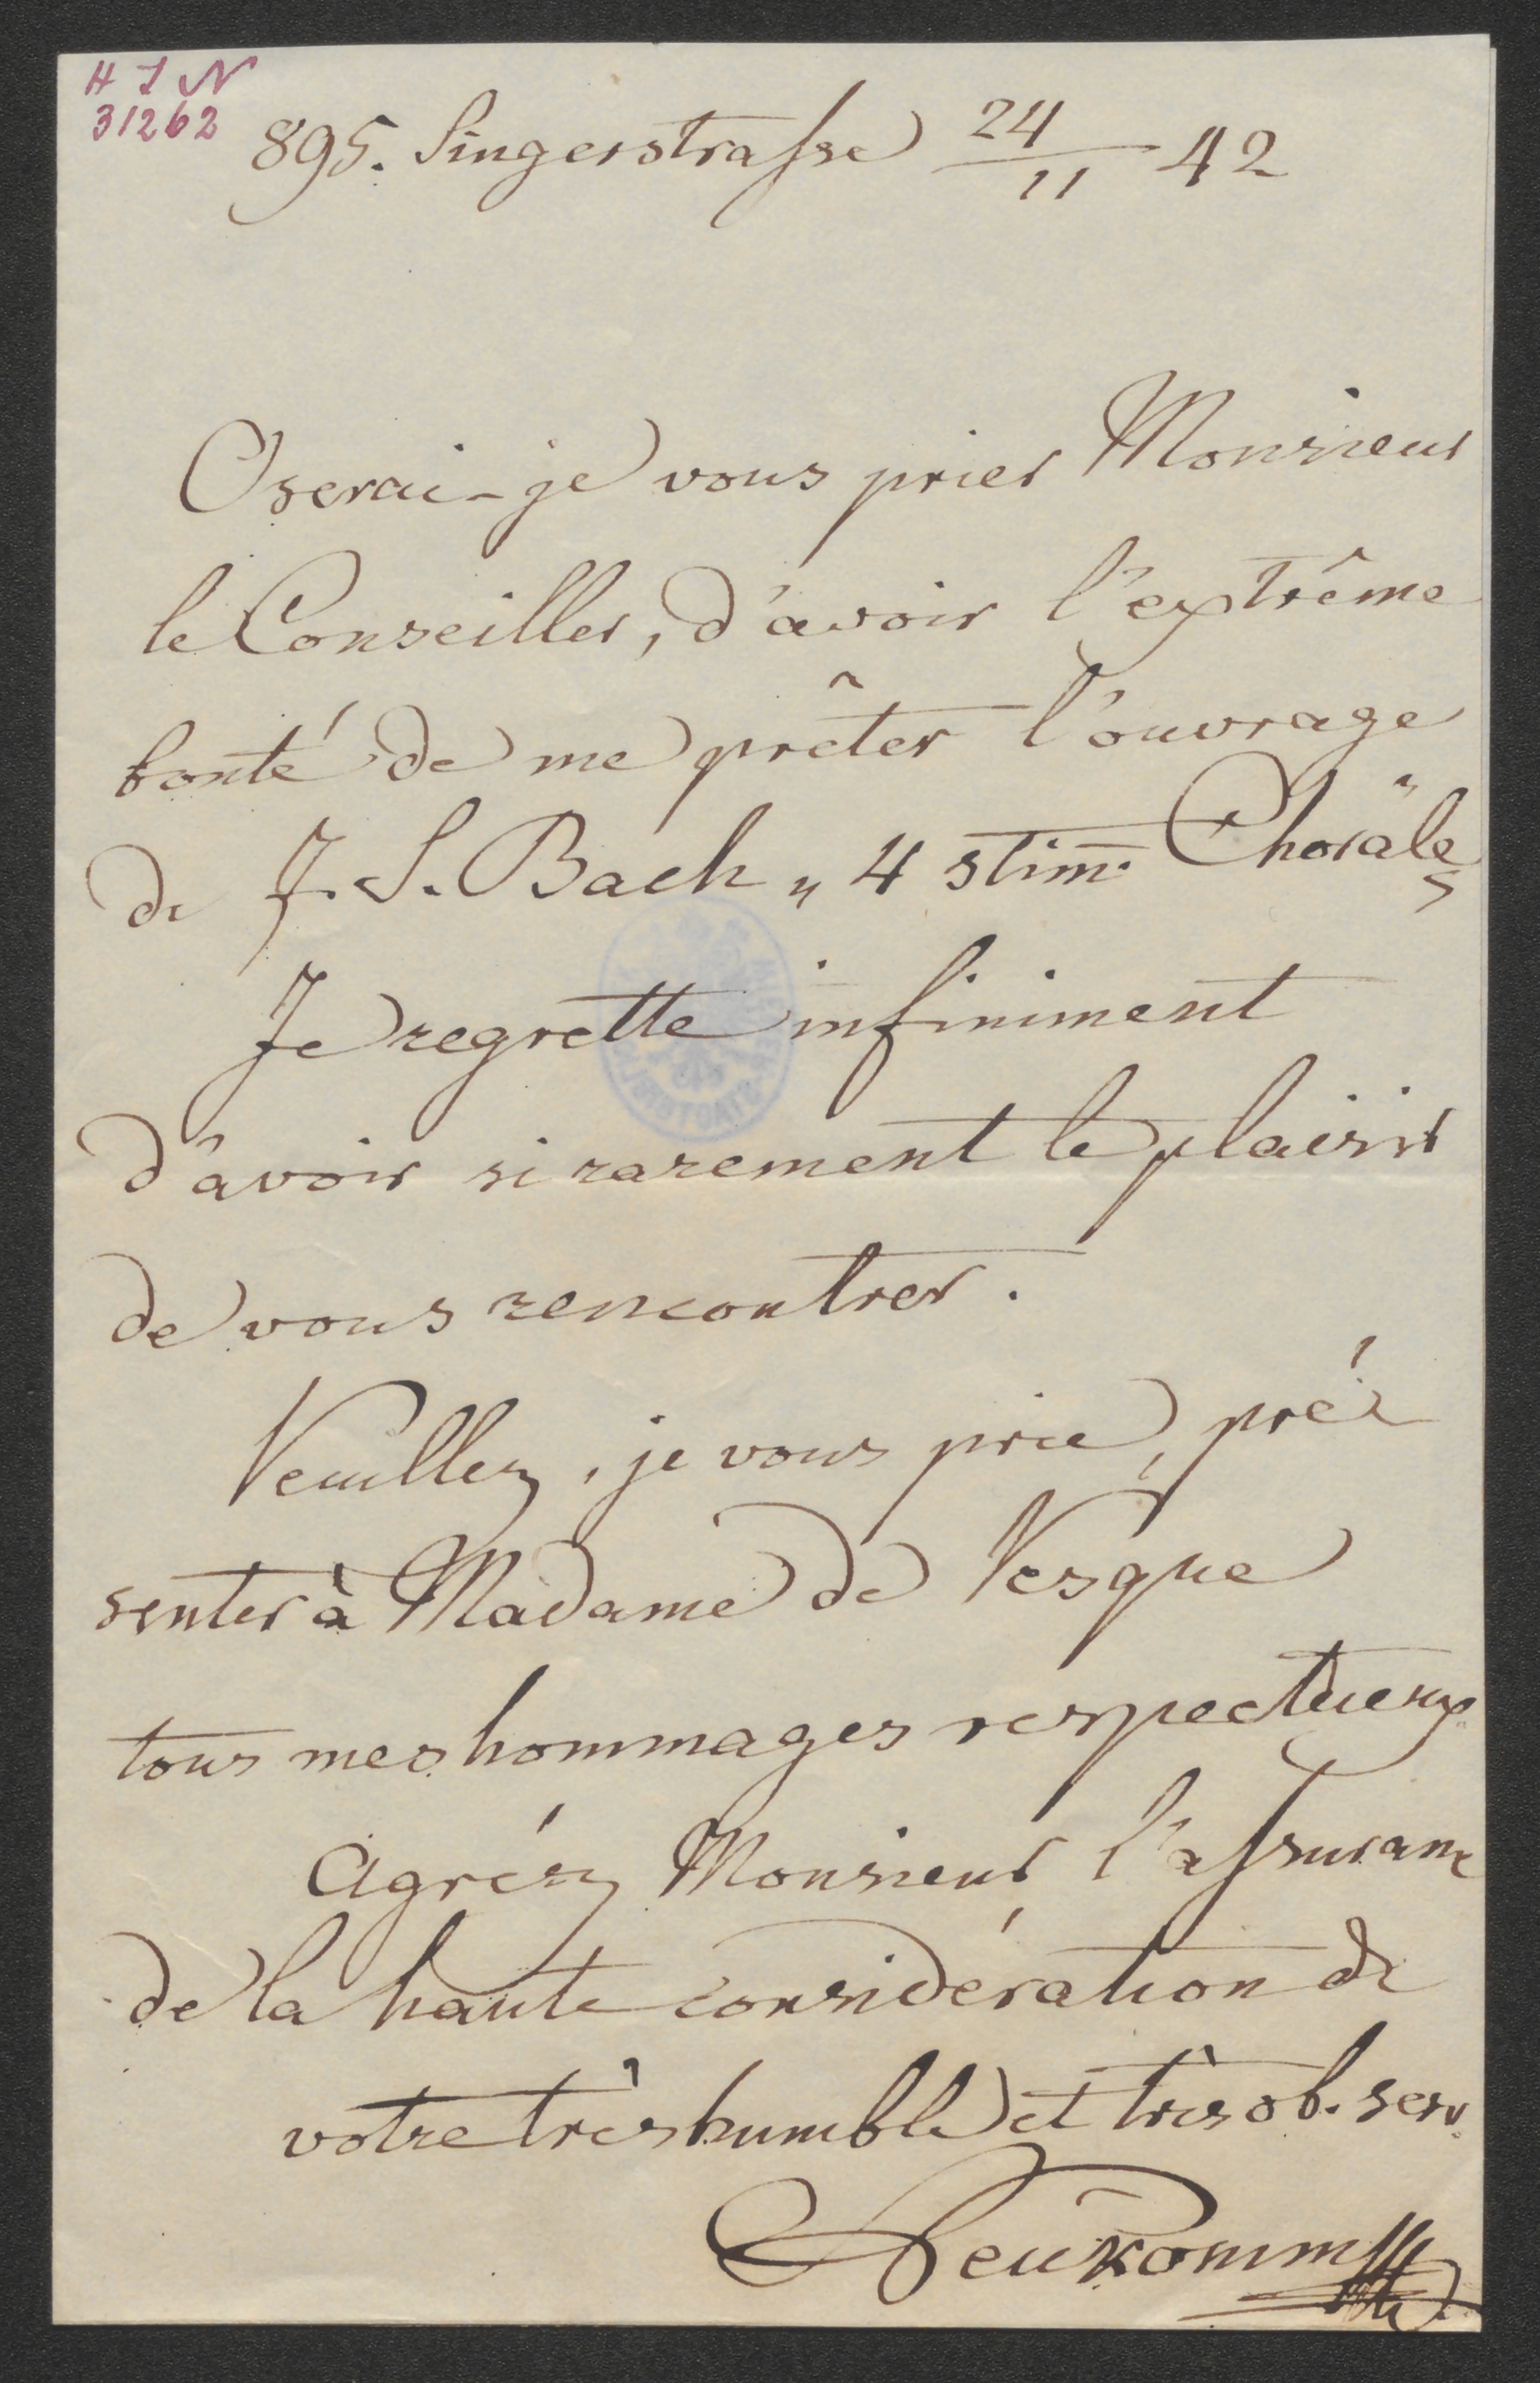 H I N
31262
895. Singerstrasse 24/11 42
Oserai-je vous prier Monsieur
le Conseiller, d'avoir l'extrême
bonté de me prêter l'ouvrage
de J. S. Bach „ 4 stim̅. Choräle
Je regrette infiniment
d'avoir si rarement le plaisir
de vous rencontrer.
Veuillez, je vous prie, pré
senter à Madame de Vesque
tous mes hommages respectueux
Agréez Monsieur l'assurance
de la haute considération de
votre très humble et très ob. serv.
Neukomm